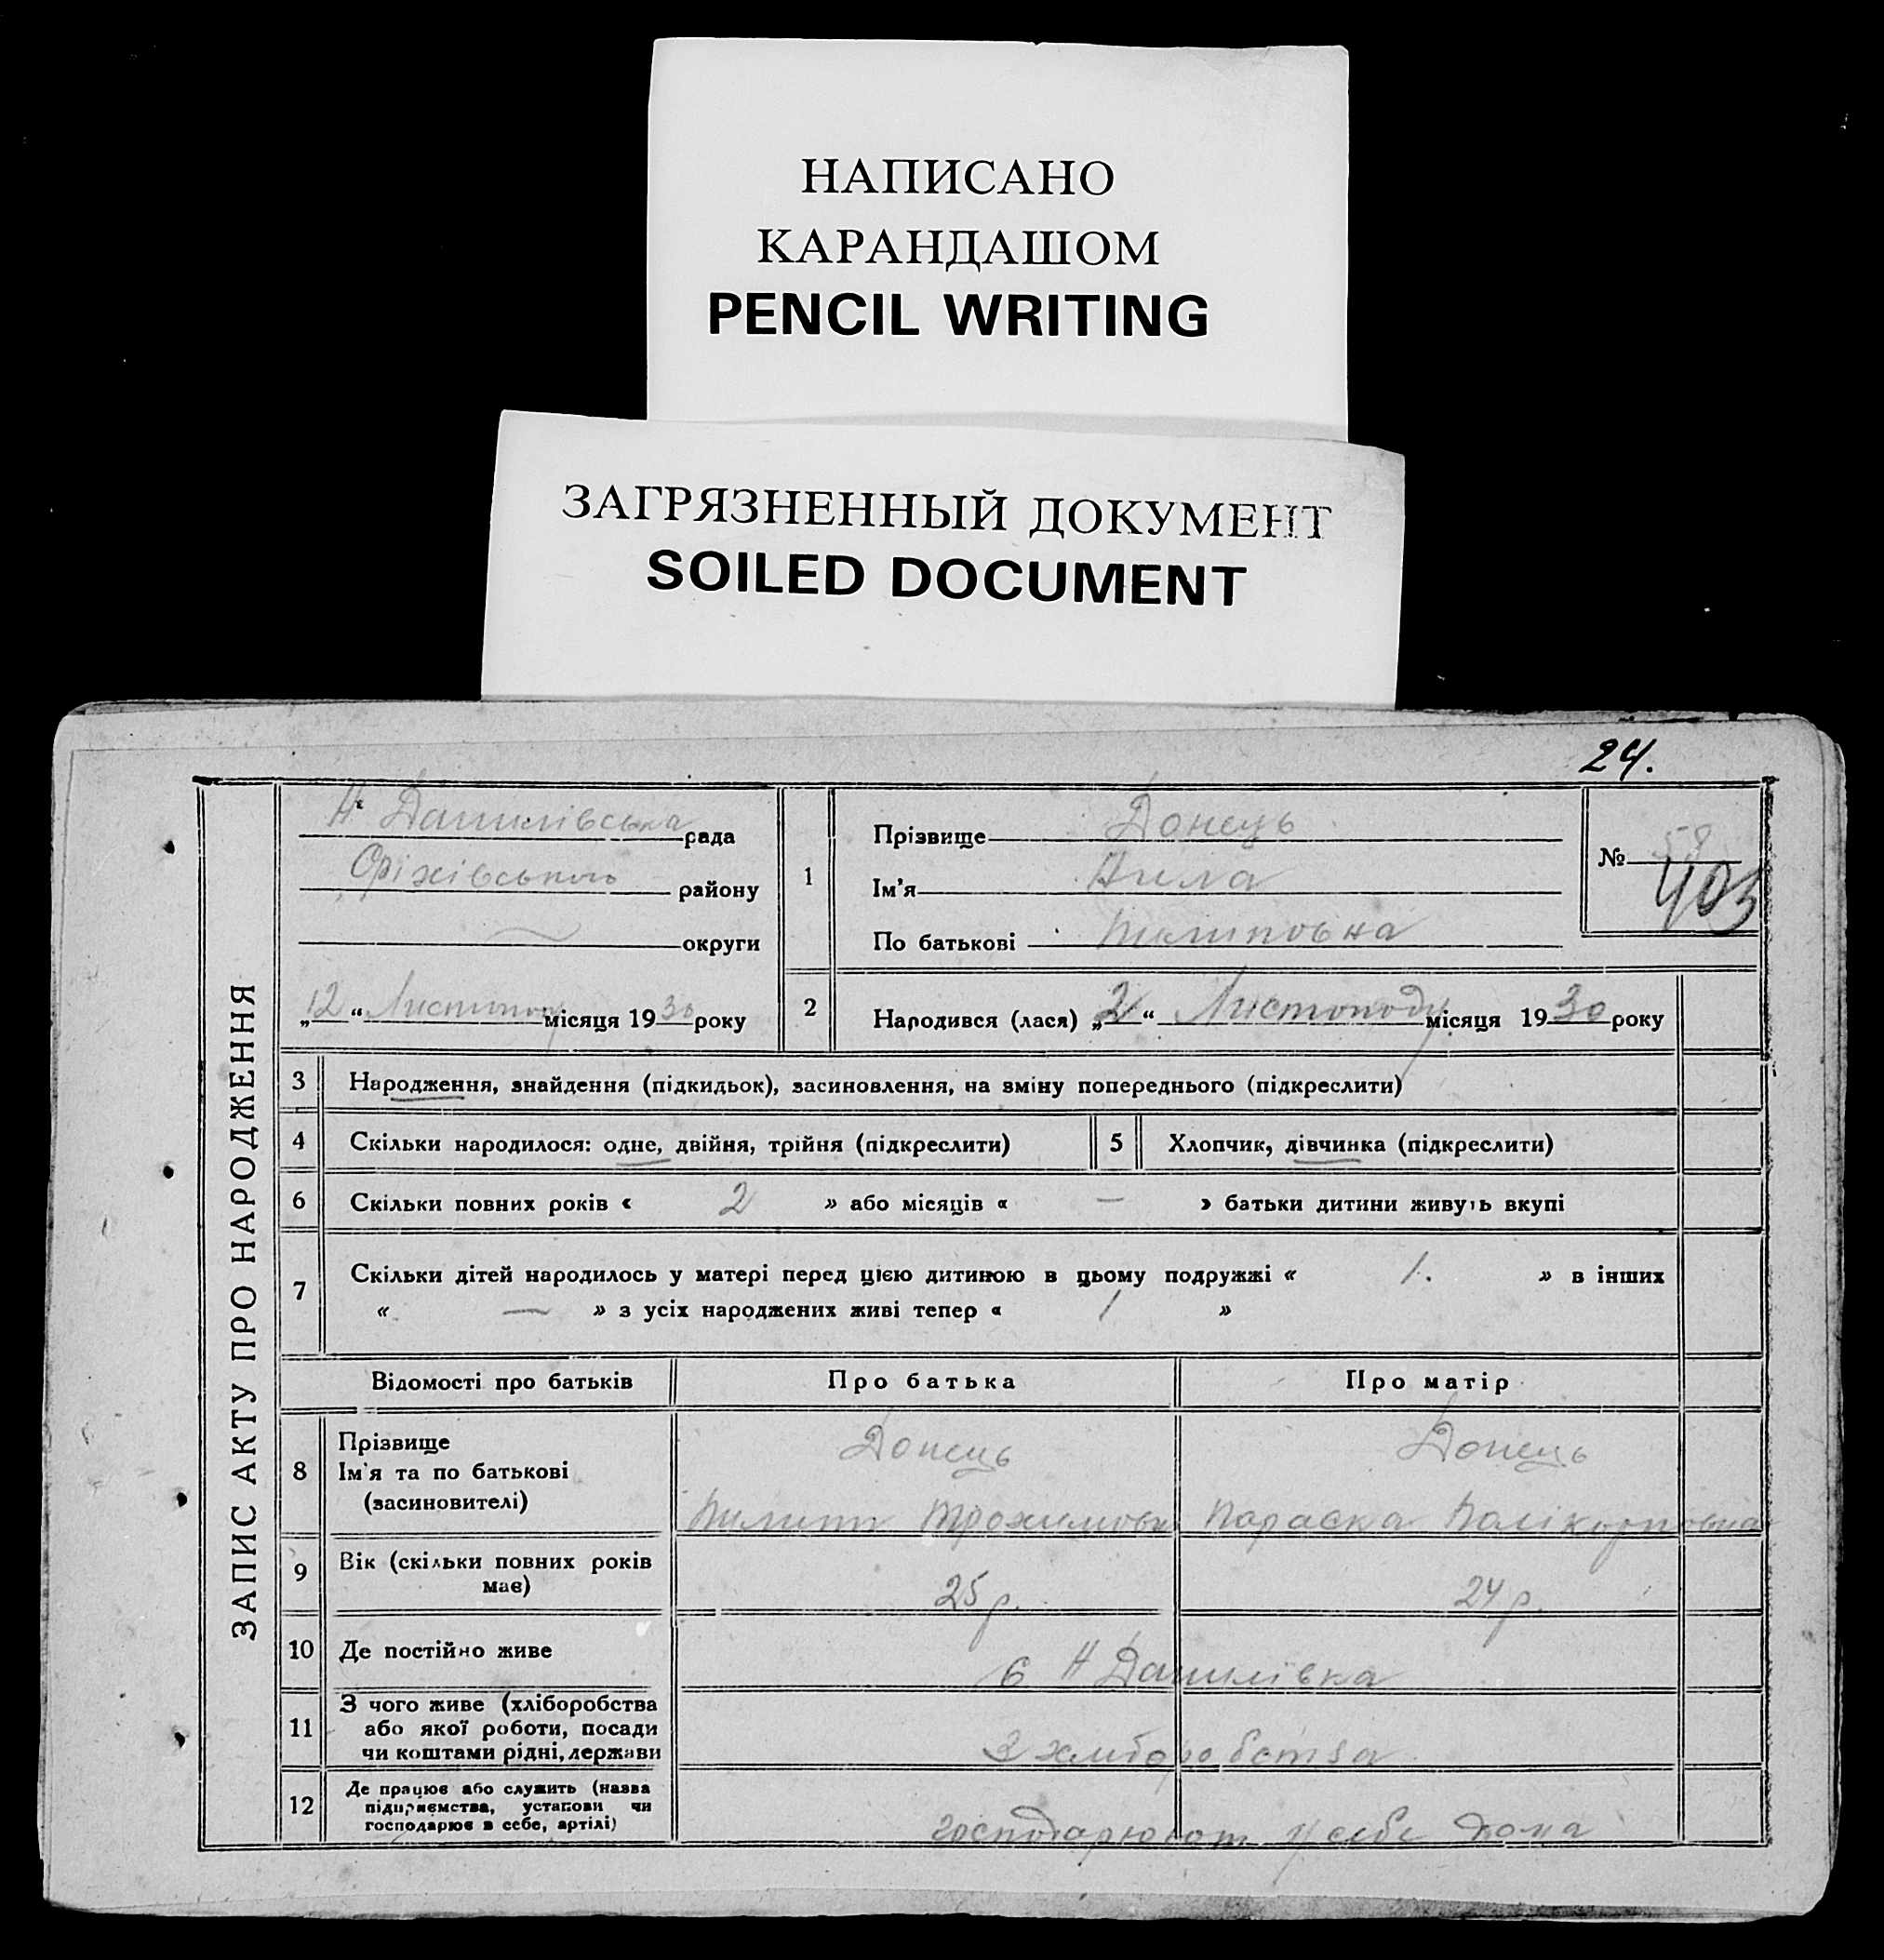 НАПИСАНО
КАРАНДАШОМ
PENCIL WRITING
ЗАГРЯЗНЕННЫЙ ДОКУМЕНТ
SOILED DOCUMENT
24.
ЗАПИС АКТУ ПРО НАРОДЖЕННЯ
Н Данилівська рада
Оріхівського району
округи
„12“ Листопаду місяця 1930 року
1
Прізвище Донець
Ім'я Нила
По батькові Пилиповна
№ 58
403
2
Народився (лася) „2“ Листопаду місяця 1930 року
3 Народження, знайдення (підкидьок), засиновлення, на зміну попереднього (підкреслити)
4 Скільки народилося: одне, двійня, трійня (підкреслити) 5 Хлопчик, дівчинка (підкреслити)
6 Скільки повних років « 2 » або місяців « — » батьки дитини живуть вкупі
7 Скільки дітей народилось у матері перед цією дитиною в цьому подружжі « 1. » в інших
« — » з усіх народжених живі тепер « 1 »
Відомості про батьків Про батька Про матір
8 Прізвище Донець Донець
Ім'я та по батькові
(засиновителі) Пилип Трохимови Параска Полікарповна
9 Вік (скільки повних років
має) 25 р. 24 р.
10 Де постійно живе с Н Данилівка
11 З чого живе (хліборобства
або якої роботи, посади
чи коштами рідні, держави З хліборобства
12 Де працює або служить (назва
підприємства, установи чи
господарює в себе, артілі) господарюют у себе дома